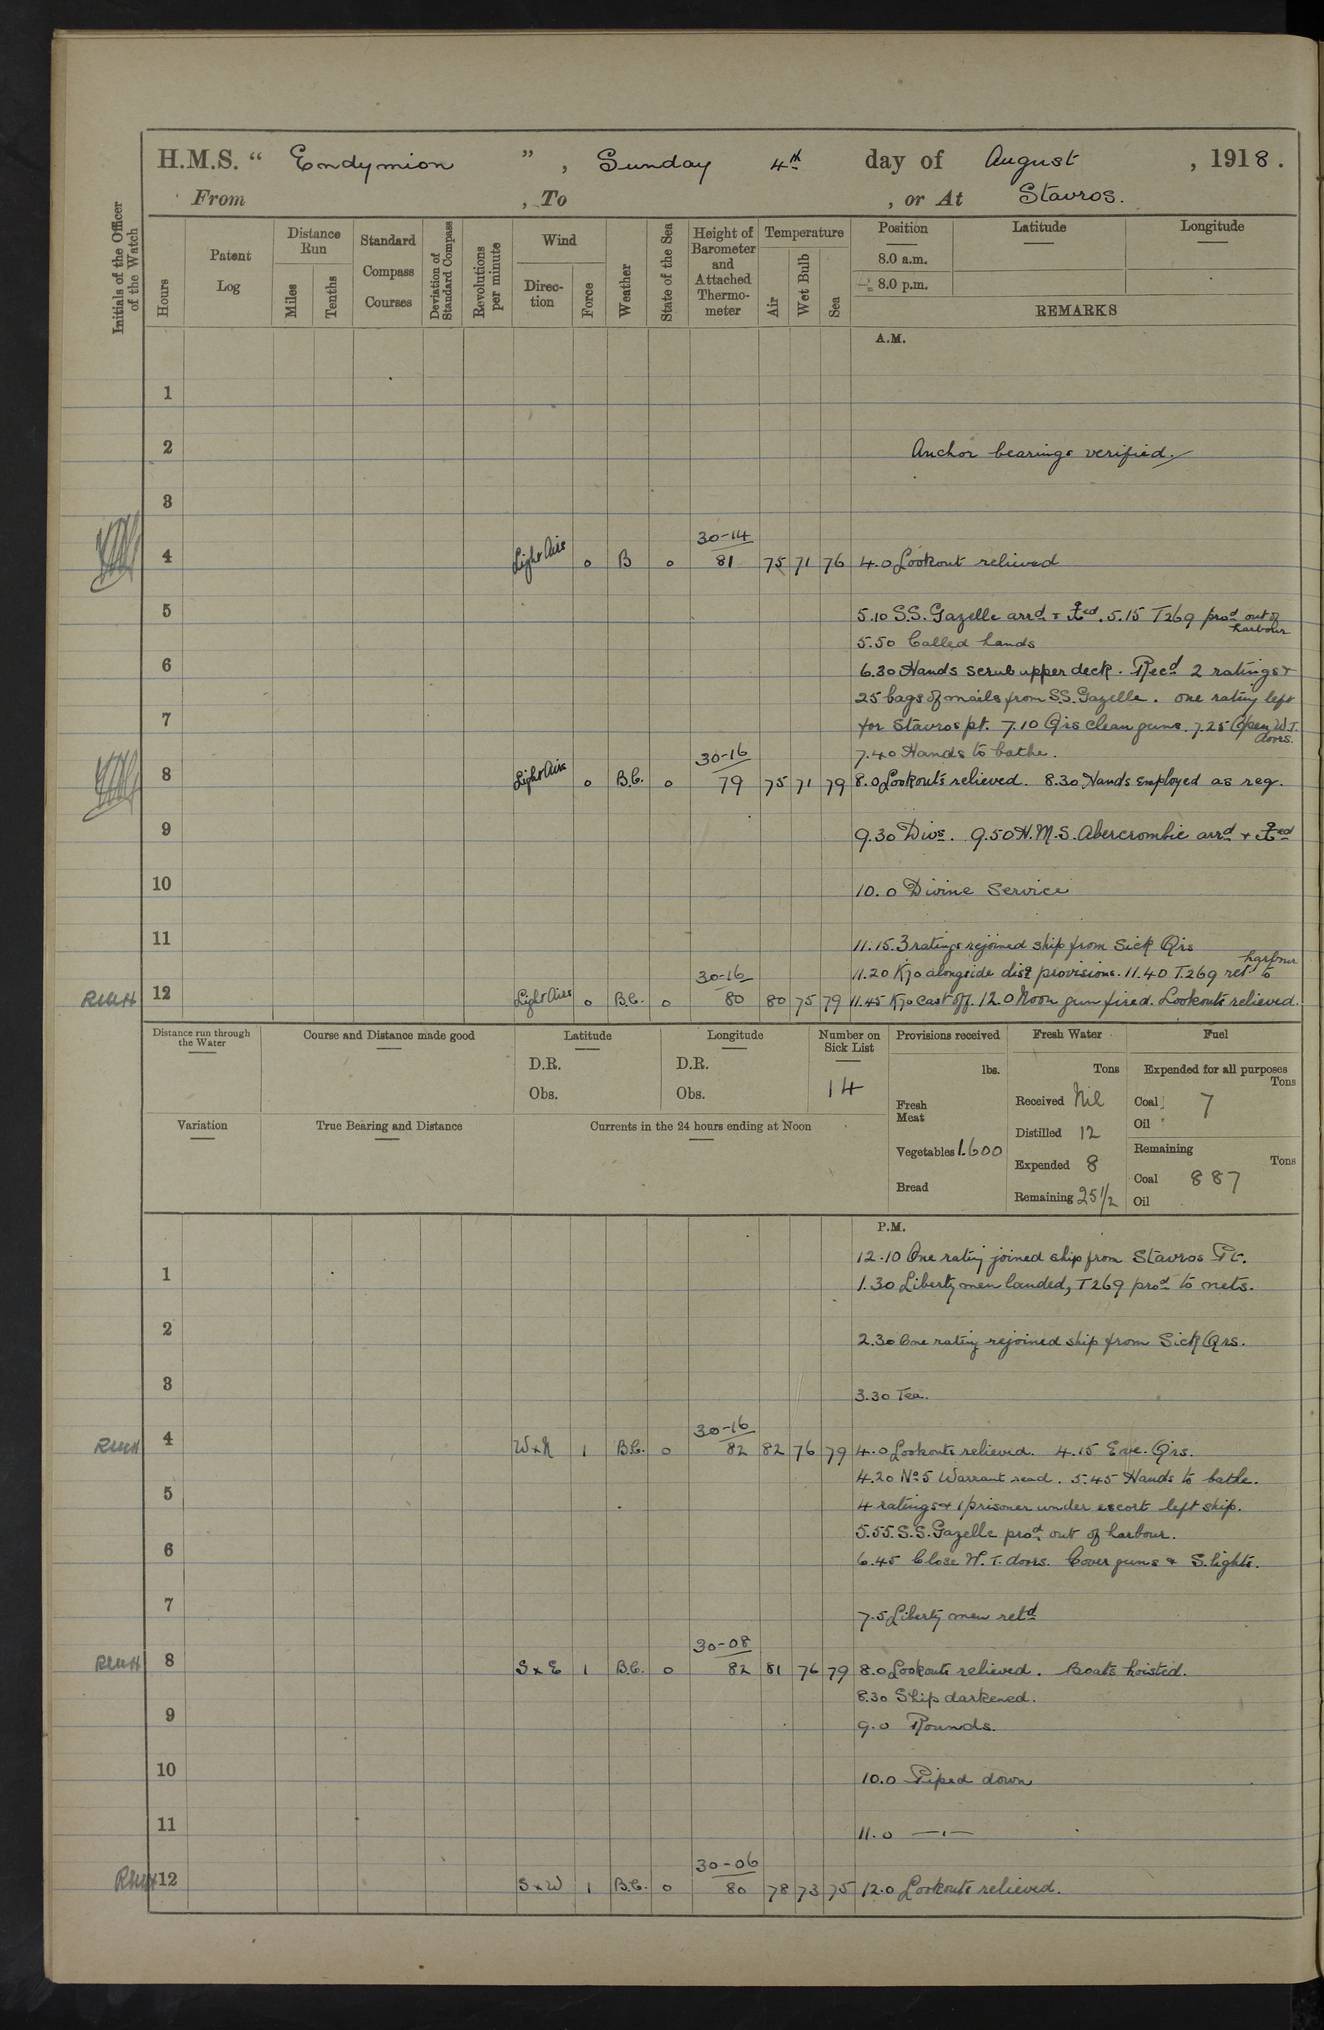 H.M.S. “ Endymion ” , Sunday 4th day of August , 1918 .
From , To , or At Stavros.
Initials of the Officer of the Watch
Hours
Patent Log
Distance Run
Miles
Tenths
Standard Compass Courses
Deviation of Standard Compass
Revolutions per minute
Wind
Direction
Force
Weather
State of the Sea
Height of Barometer and Attached Thermometer
Temperature
Air
Wet Bulb
Sea
Position
Latitude
Longitude
8.0 a.m.
8.0 p.m.
REMARKS
A.M.
1
2 Anchor bearings verified.
3
30-14
4 Light Airs 0 B 0 81 75 71 76 4.0 Lookout relieved
5 5.10 S.S. Gazelle arrd & ⚓ed. 5.15 T269 prod out of harbour
5.50 Called hands
6 6.30 Hands scrub upper deck. Recd 2 ratings &
25 bags of mails from S.S. Gazelle. one rating left
7 for Stavros pt. 7.10 Qrs clean guns. 7.25 Open W.T. doors.
30-16 7.40 Hands to bathe.
8 Light Airs 0 B.C. 0 79 75 71 79 8.0 Lookouts relieved. 8.30 Hands employed as req.
9 9.30 Divs. 9.50 H.M.S. Abercrombie arrd & ⚓ed
10 10.0 Divine Service
11 11.15. 3 ratings rejoined ship from Sick Qrs
30-16 11.20 K70 alongside disg provisions. 11.40 T.269 ret to harbour
RMH 12 Light Airs 0 B.C. 0 80 80 75 79 11.45 K70 cast off. 12.0 Noon gun fired. Lookouts relieved.
Distance run through the Water
Course and Distance made good
Latitude
D.R.
Obs.
Longitude
D.R.
Obs.
Number on Sick List
14
Provisions received
lbs.
Fresh Meat
Vegetables 1.600
Bread
Fresh Water
Tons
Received Nil
Distilled 12
Expended 8
Remaining 25 1/2
Fuel
Expended for all purposes
Tons
Coal 7
Oil
Remaining
Tons
Coal 887
Oil
Variation
True Bearing and Distance
Currents in the 24 hours ending at Noon
P.M.
12.10 One rating joined ship from Stavros Pt.
1 1.30 Liberty men landed, T269 prod to nets.
2 2.30 One rating rejoined ship from Sick Qrs.
3 3.30 Tea.
30-16
RMH 4 W x N 1 B.C. 0 82 82 76 79 4.0 Lookouts relieved. 4.15 Eve. Qrs.
4.20 No 5 Warrant read. 5.45 Hands to bathe.
5 4 ratings & 1 prisoner under escort left ship.
5.55. S.S. Gazelle prod out of harbour.
6 6.45 Close W.T. doors. Cover guns & S. lights.
7 7.5 Liberty men retd
30-08
RMH 8 S x E 1 B.C. 0 82 81 76 79 8.0 Lookouts relieved. Boats hoisted.
8.30 Ship darkened.
9 9.0 Rounds.
10 10.0 Piped down
11 11.0 —"—
30-06
RMH 12 S x W 1 B.C. 0 80 78 73 75 12.0 Lookouts relieved.